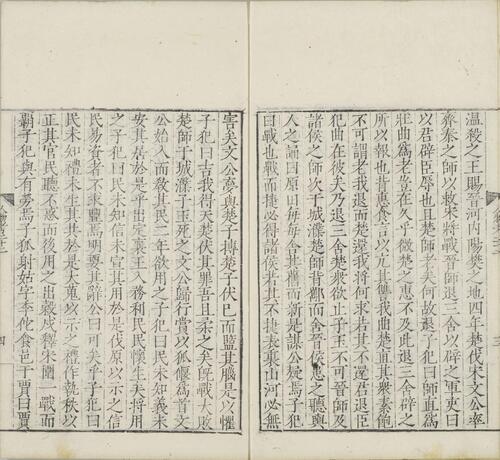 溫殺之王賜晉河內陽樊之地四年楚伐宋文公率
齊秦之師以救宋將戰晉師退三舍以辟之軍吏曰
以君辟臣辱也且楚師老矣何故退子犯曰師直爲
壯曲爲老豈在久乎微楚之惠不及此退三舍辟之
所以報也背惠食言以亢其讐我曲楚直其衆素飽
不可謂老我退而楚還我將何求若其不還君退臣
犯曲在彼矣乃退三舍楚衆欲止子玉不可晉師及
諸侯之師次于城濮楚師背酅而舍晉侯患之聽輿
人之誦曰原田每每舍其舊而新是謀公疑焉子犯
曰戰也戰而捷必得諸侯若其不捷表裏山河必無
害矣文公夢與楚子搏楚子伏已而盬其腦是以懼
子犯曰吉我得天楚伏其罪吾且柔之矣旣戰大敗
楚師于城濮子玉死之文公歸行賞以狐偃爲首文
公始入而教其民二年欲用之子犯曰民未知義未
安其居於是乎出定襄王入務利民民懷生矣將用
之子犯曰民未知信未宣其用於是伐原以示之信
民易資者不求豐焉明要其辭公曰可矣乎子犯曰
民未知禮未生其共於是大蒐以示之禮作執秩以
正其官民聽不惑而後用之出穀戍釋宋圍一戰而
霸子犯與有勞焉子狐射姑字季佗食邑于賈曰賈